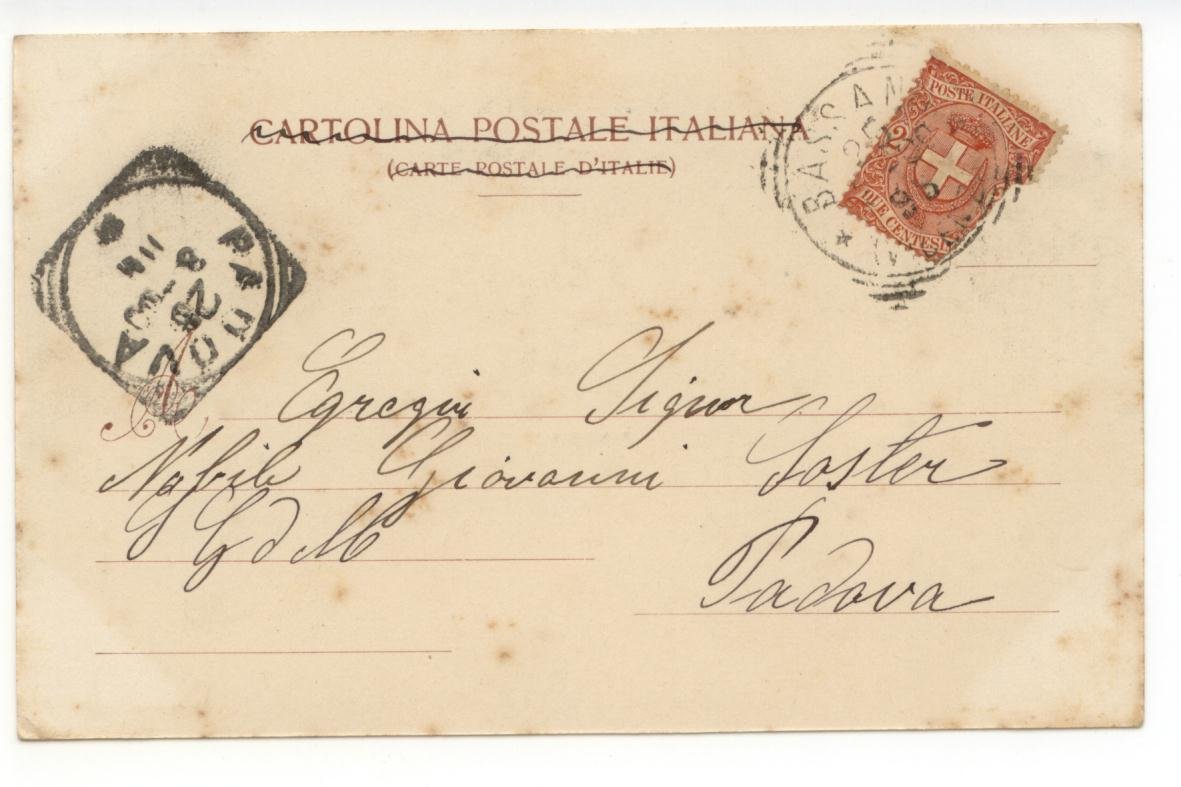 CARTOLINA POSTALE ITALIANA
(CARTE POSTALE D'ITALIE)
POSTE ITALIANE
2
DUE CENTESI
BASSAN
PADOVA
Signor
Nobile Giovanni Soster
Padova